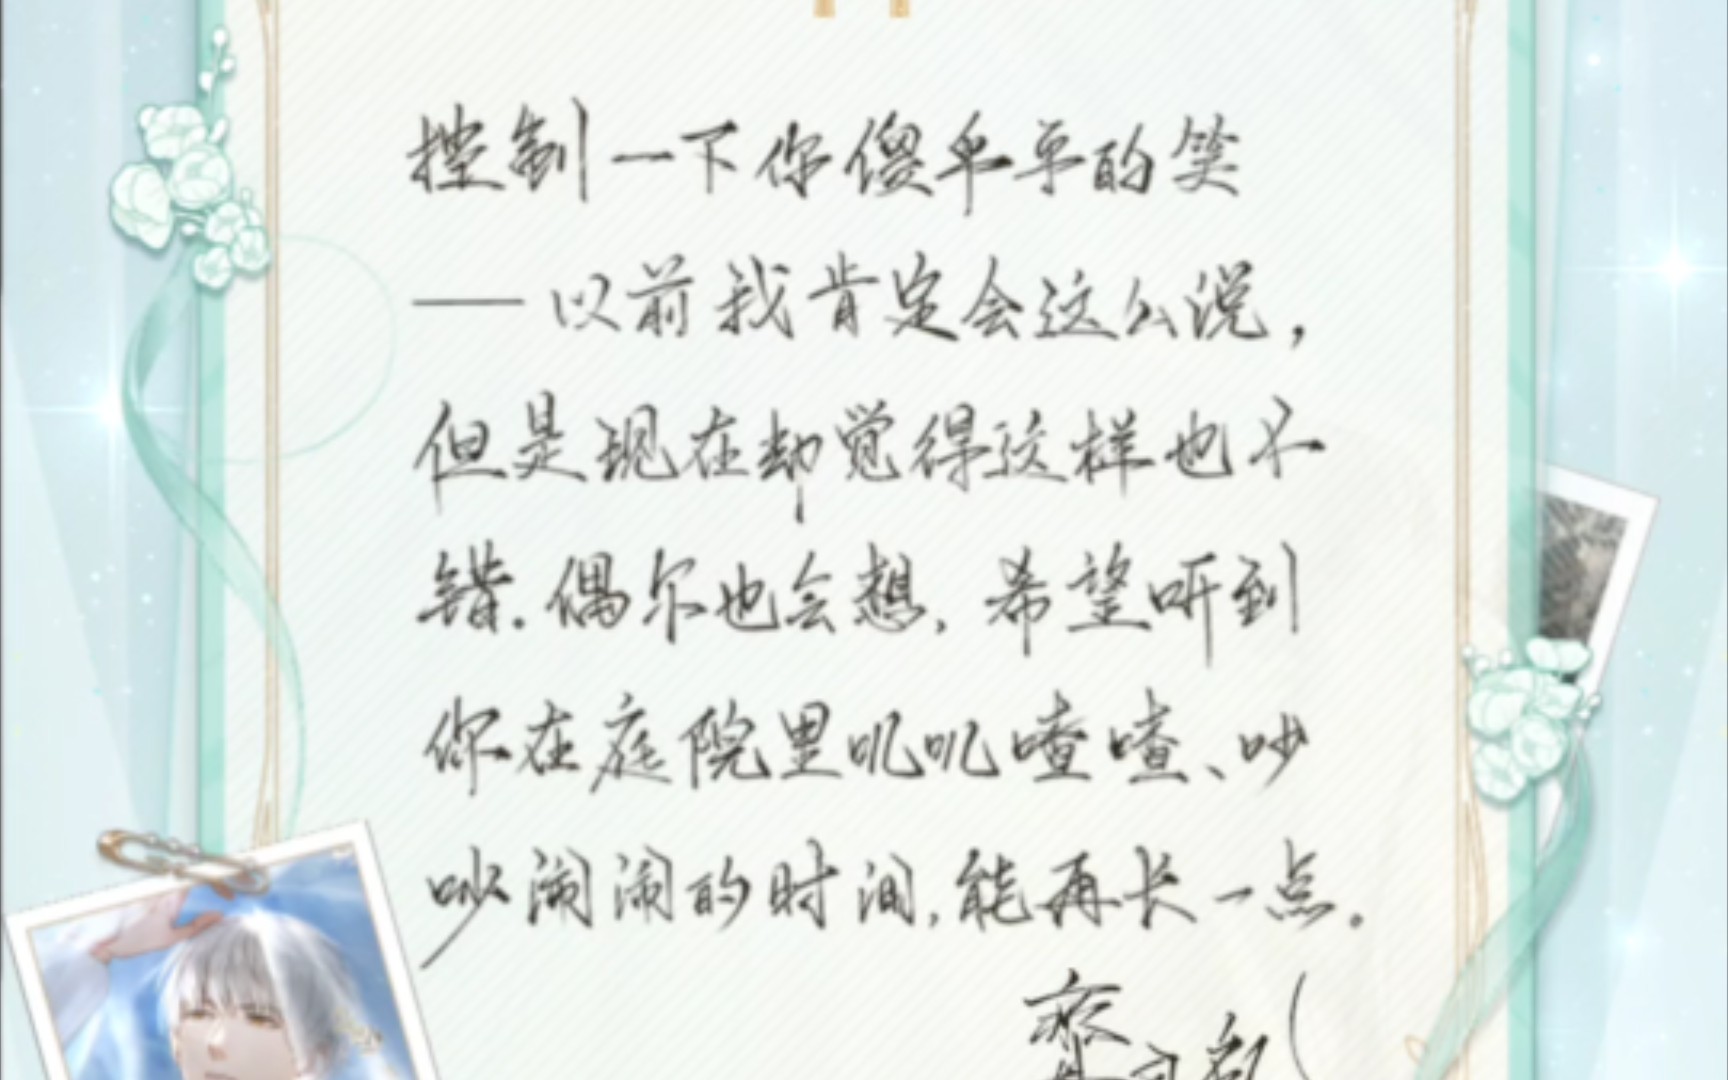 控制一下你傻乎乎的笑
——以前我肯定会这么说，
但是现在却觉得这样也不
错.偶尔也会想，希望听到
你在庭院里叽叽喳喳、吵
吵闹闹的时间，能再长一点.
齐司礼